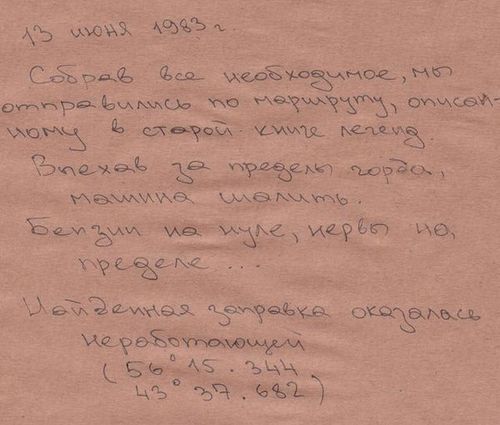 13 июня 1983 г.
Собрав все необходимое, мы
отправились по маршруту, описан-
ному в старой книге легенд.
Выехав за пределы горда,
машина шалить.
Бензин на нуле, нервы на
пределе ...
Найденная заправка оказалась
неработающей
(56° 15.344
43° 37.682)